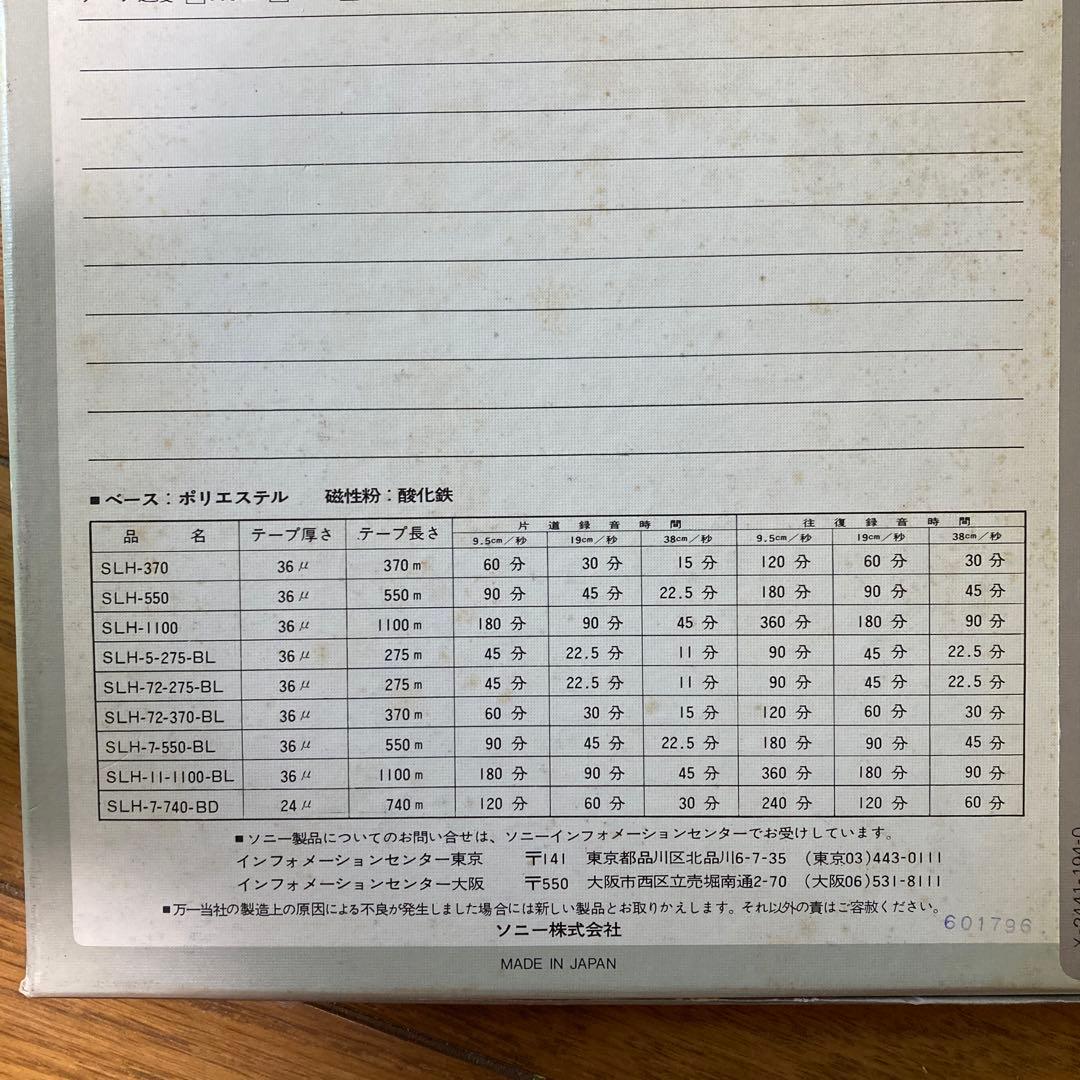 ■ベース：ポリエステル　磁性粉：酸化鉄
品名 テープ厚さ テープ長さ 片道録音時間 往復録音時間
9.5cm／秒 19cm／秒 38cm／秒 9.5cm／秒 19cm／秒 38cm／秒
SLH-370 36μ 370m 60分 30分 15分 120分 60分 30分
SLH-550 36μ 550m 90分 45分 22.5分 180分 90分 45分
SLH-1100 36μ 1100m 180分 90分 45分 360分 180分 90分
SLH-5-275-BL 36μ 275m 45分 22.5分 11分 90分 45分 22.5分
SLH-72-275-BL 36μ 275m 45分 22.5分 11分 90分 45分 22.5分
SLH-72-370-BL 36μ 370m 60分 30分 15分 120分 60分 30分
SLH-7-550-BL 36μ 550m 90分 45分 22.5分 180分 90分 45分
SLH-11-1100-BL 36μ 1100m 180分 90分 45分 360分 180分 90分
SLH-7-740-BD 24μ 740m 120分 60分 30分 240分 120分 60分
■ソニー製品についてのお問い合せは、ソニーインフォメーションセンターでお受けしています。
インフォメーションセンター東京　〒141　東京都品川区北品川6-7-35　(東京03)443-0111
インフォメーションセンター大阪　〒550　大阪市西区立売堀南通2-70　(大阪06)531-8111
■万一当社の製造上の原因による不良が発生しました場合には新しい製品とお取りかえします。それ以外の責はご容赦ください。
ソニー株式会社
601796
MADE IN JAPAN